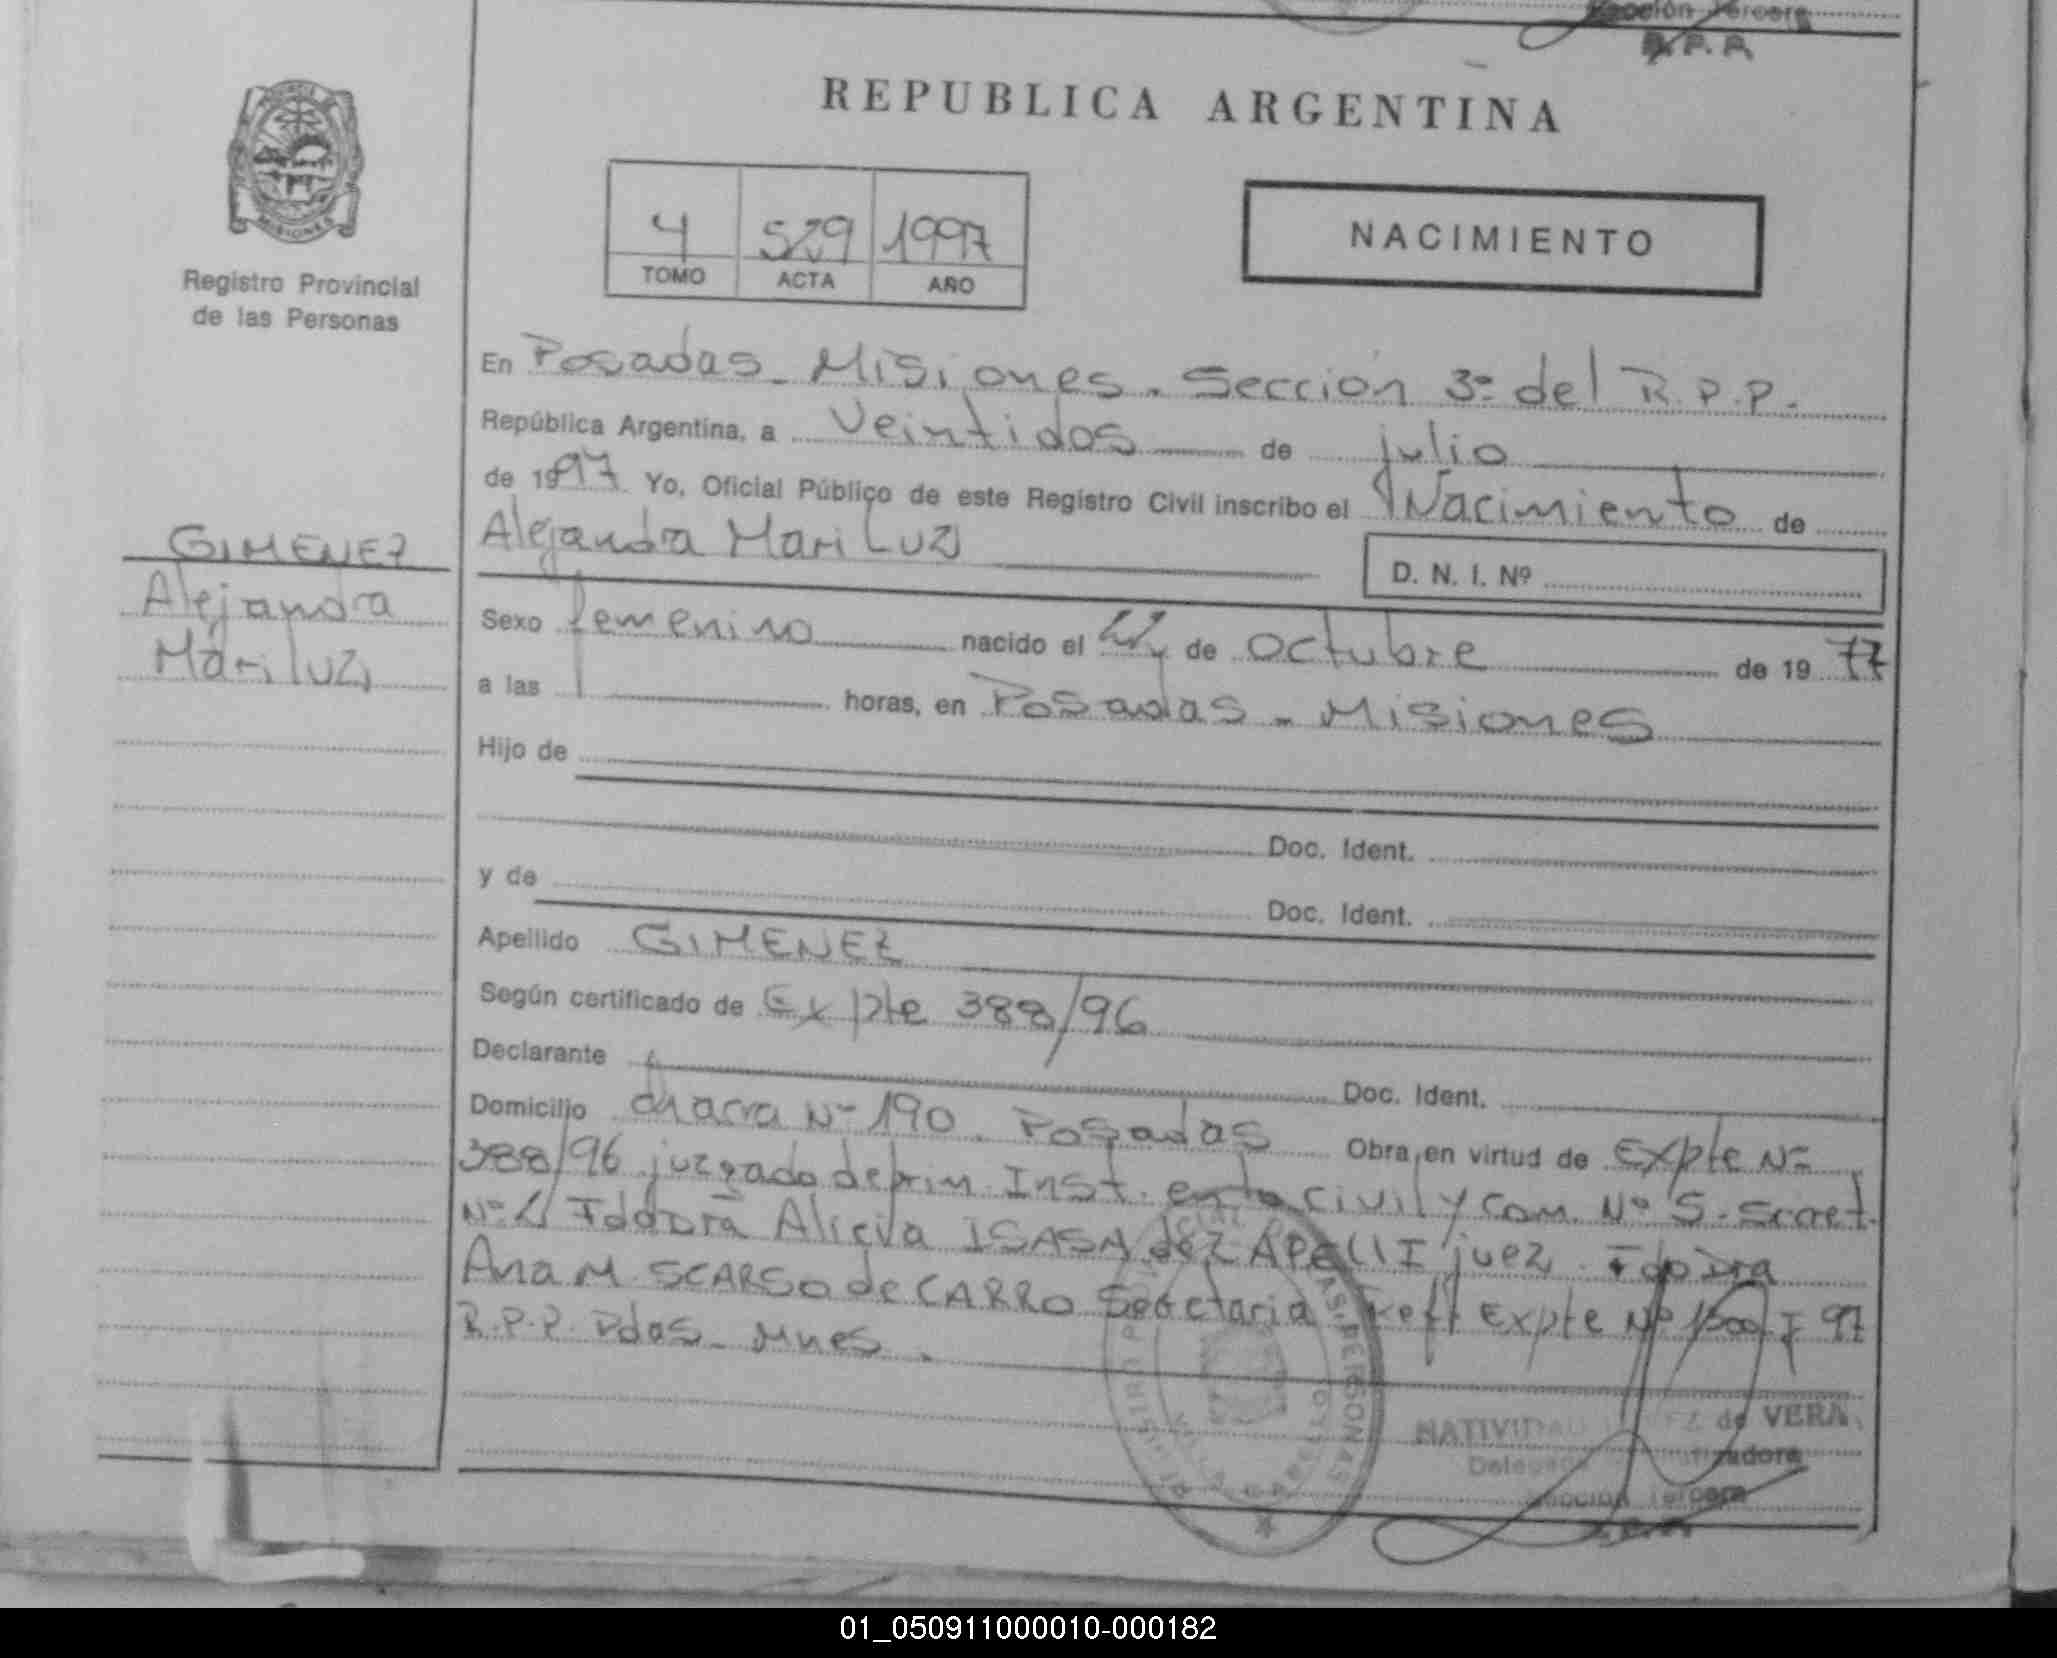 Sección Tercera
R.P.P.
REPUBLICA ARGENTINA
PROVINCIA DE
MISIONES
Registro Provincial
de las Personas
4 529 1997
TOMO ACTA AÑO
NACIMIENTO
En Posadas - Misiones. Sección 3º del R.P.P.
República Argentina, a Veintidos de julio
de 1997 Yo, Oficial Público de este Registro Civil inscribo el Nacimiento de
Alejandra Mari Luz
D. N. I. Nº
GIMENEZ
Alejandra
Mari luz
Sexo femenino nacido el de octubre de 1977
a las horas, en Posadas - Misiones
Hijo de
Doc. Ident.
y de
Doc. Ident.
Apellido GIMENEZ
Según certificado de Expte 388/96
Declarante
Doc. Ident.
Domicilio chacra Nº 190. Posadas Obra, en virtud de Expte Nº
388/96 juzgado de prim. Inst. en lo Civil y Com. Nº 5. Scret.
Nº Fdo Dra Alicia ISASA de ZAPELLI juez. Fdo Dra
Ana M. SCARSO de CARRO Secretaria Reff Expte Nº I 97
R.P.P. Pdas - Mnes.
REGISTRO PROVINCIAL DE LAS PERSONAS
VILLA CABELLO
NATIVIDAD de VERA
Delegada
Sección Tercera
01_050911000010-000182